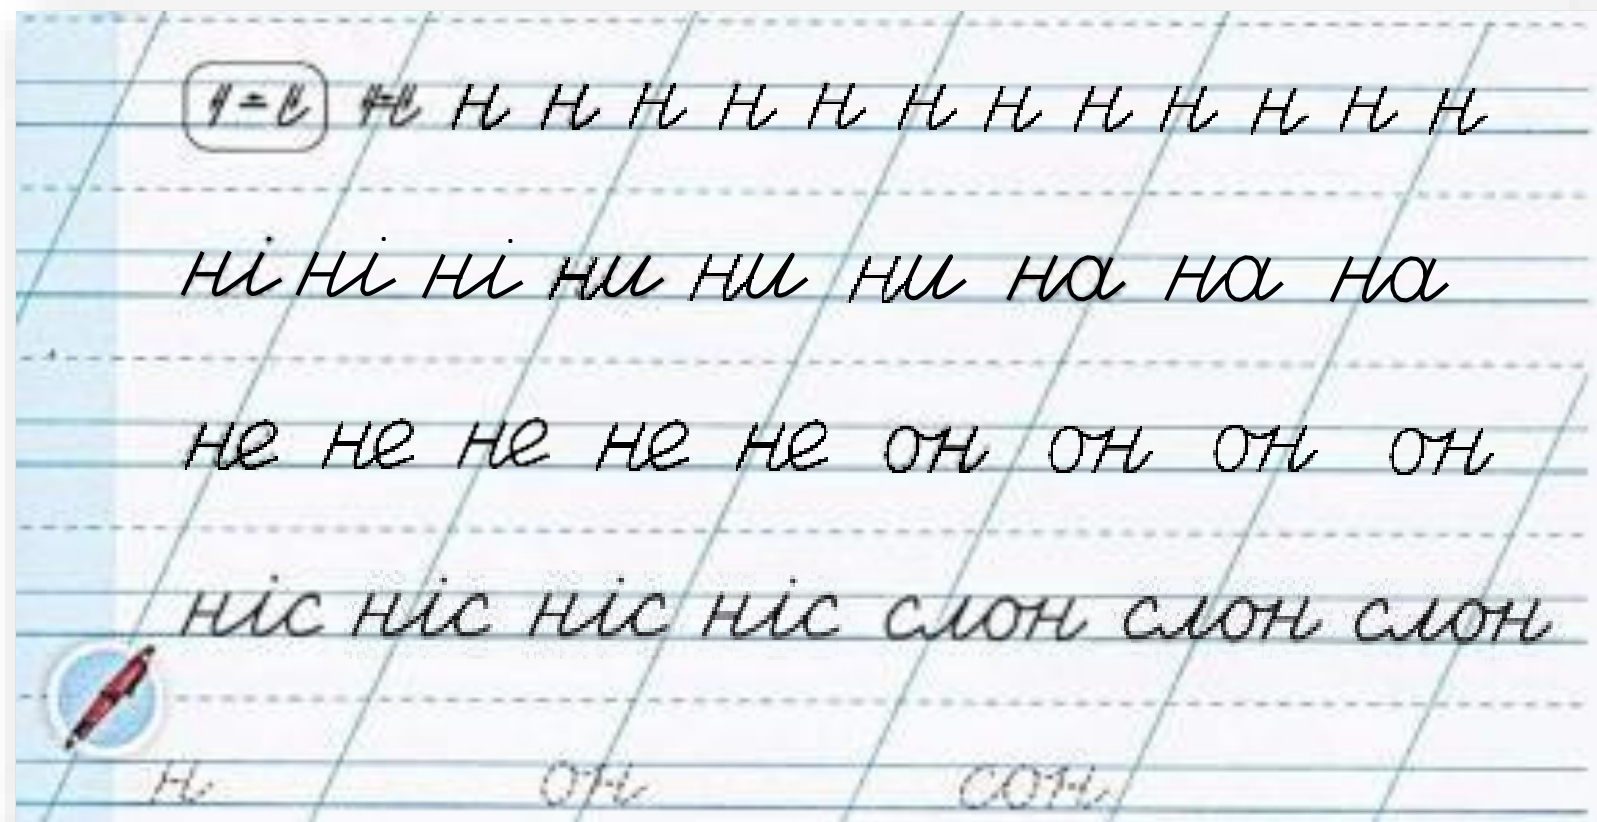 н н н н н н н н н н н н н
ні ні ні ни ни ни на на на
не не не не не он он он он
ніс ніс ніс ніс слон слон слон
н он сон